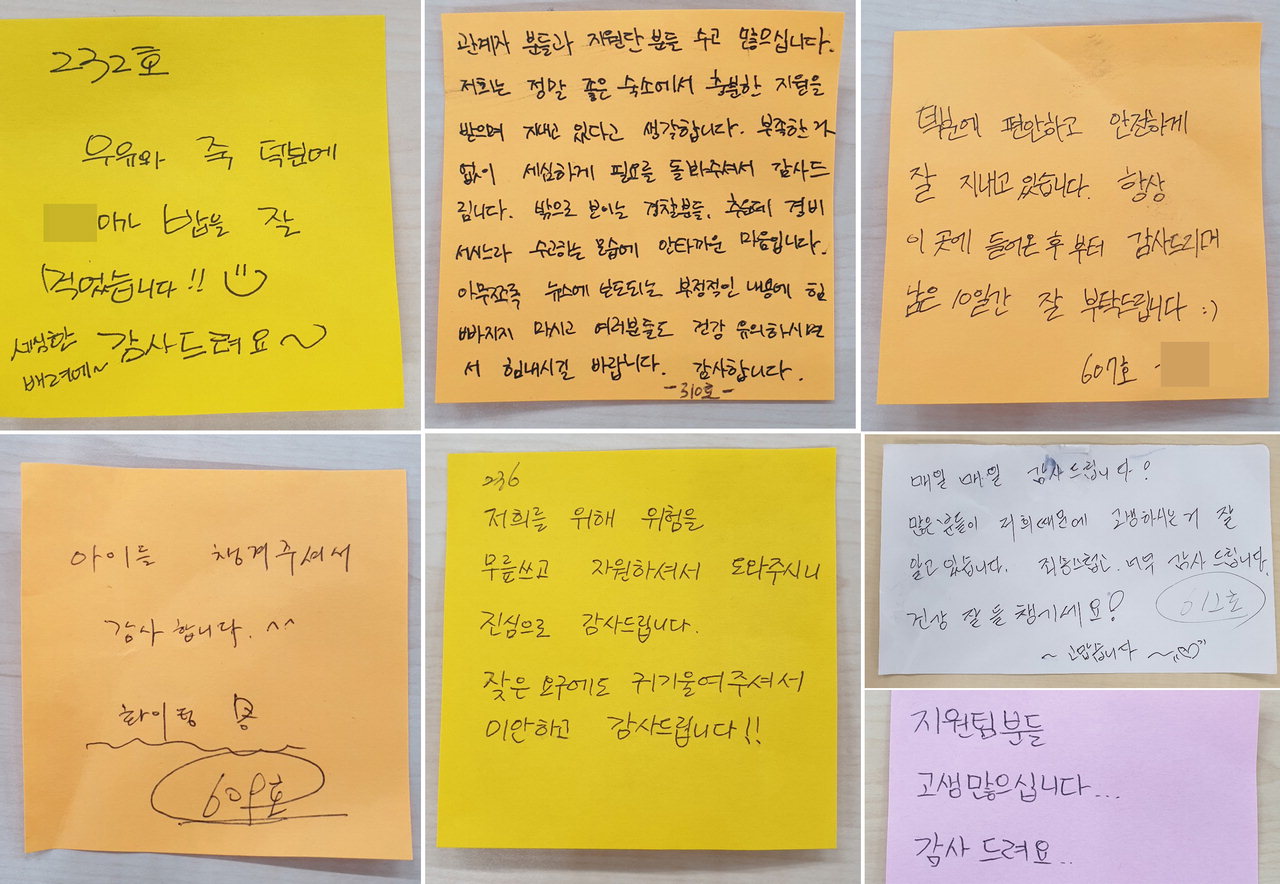 232호
우유와 죽 덕분에
이가 밥을 잘
먹었습니다!!
세심한 배려에~ 감사드려요~
관계자 분들과 지원단 분들 수고 많으십니다.
저희는 정말 좋은 숙소에서 충분한 지원을
받으며 지내고 있다고 생각합니다. 부족한거
없이 세심하게 필요를 돌봐주셔서 감사드
립니다. 밖으로 보이는 경찰분들, 추운데 경비
서시느라 수고하는 모습에 안타까운 마음입니다.
아무쪼록 뉴스에 보도되는 부정적인 내용에 힘
빠지지 마시고 여러분들도 건강 유의하시면
서 힘내시길 바랍니다. 감사합니다.
-310호-
덕분에 편안하고 안전하게
잘 지내고 있습니다. 항상
이 곳에 들어온 후 부터 감사드리며
남은 10일간 잘 부탁드립니다 :)
607호 -
아이들 챙겨주셔서
감사 합니다. ^^
화이팅
609호
236
저희를 위해 위험을
무릎쓰고 자원하셔서 도와주시니
진심으로 감사드립니다.
잦은 요구에도 귀기울여주셔서
미안하고 감사드립니다!!
매일 매일 감사드립니다!
많은 분들이 저희때문에 고생하시는거 잘
알고 있습니다. 죄송스럽고. 너무 감사 드립니다.
건강 잘들 챙기세요!
612호
~ 고맙습니다 ~
지원팀분들
고생많으십니다...
감사 드려요..